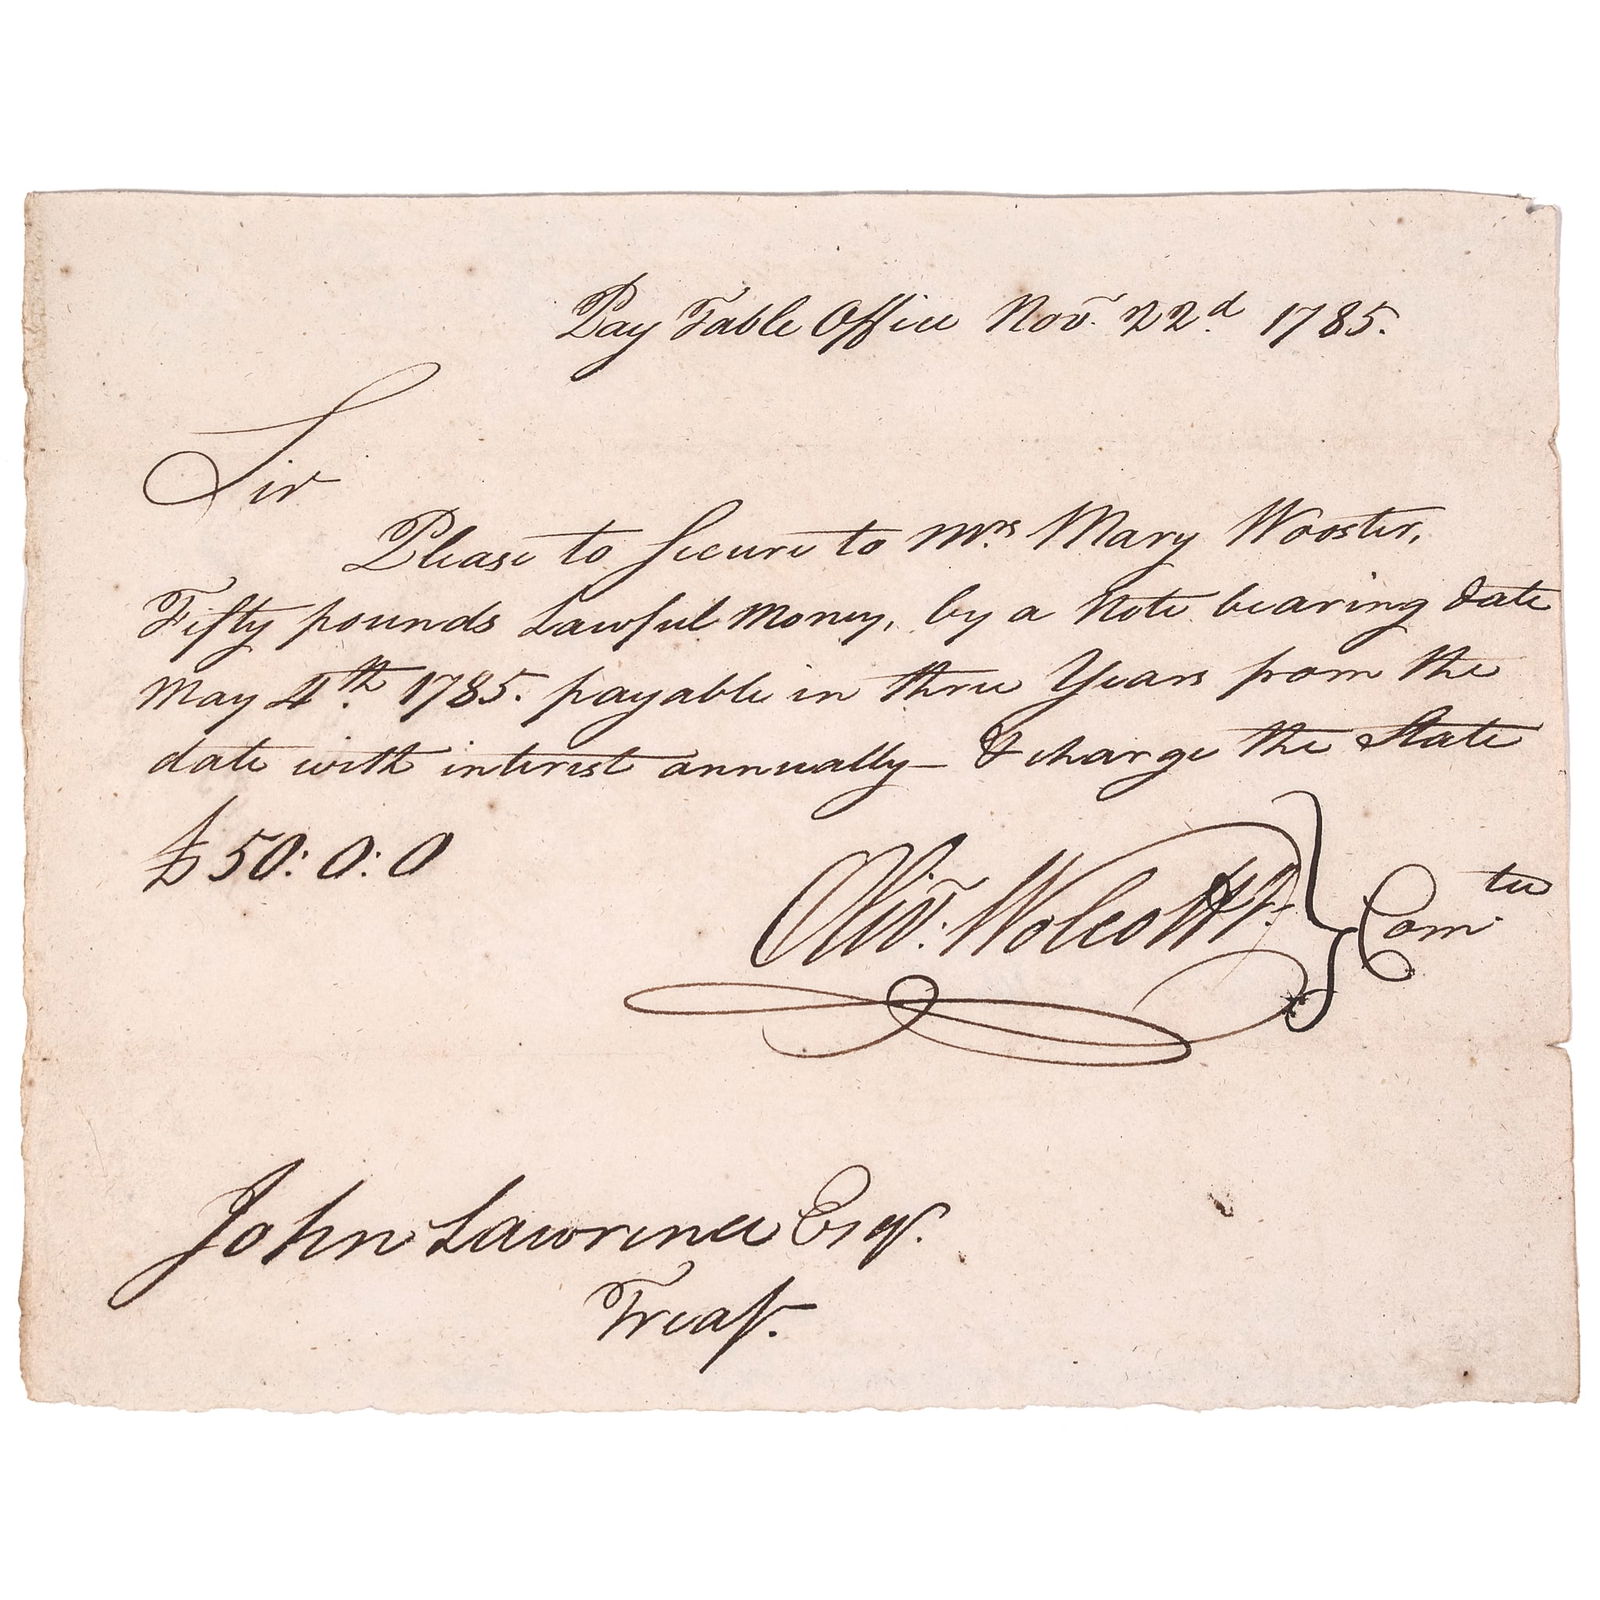 Pay Table Office Novr. 22d. 1785.
Sir
Please to Secure to Mrs. Mary Wooster,
Fifty pounds Lawful Money, by a Note bearing date
May 4th. 1785. payable in three Years from the
date with interest annually — & charge the State
£50:0:0
Olivr. Wolcott Jr. } Comtee
John Lawrence Esqr.
Treasr.